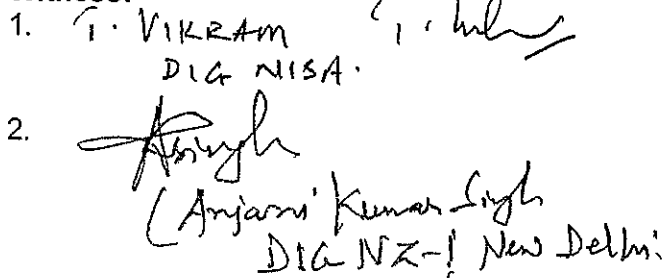 1. T. VIKRAM
DIG NISA.
2. Asingh
(Anjani Kumar Singh
DIG NZ-I New Delhi.